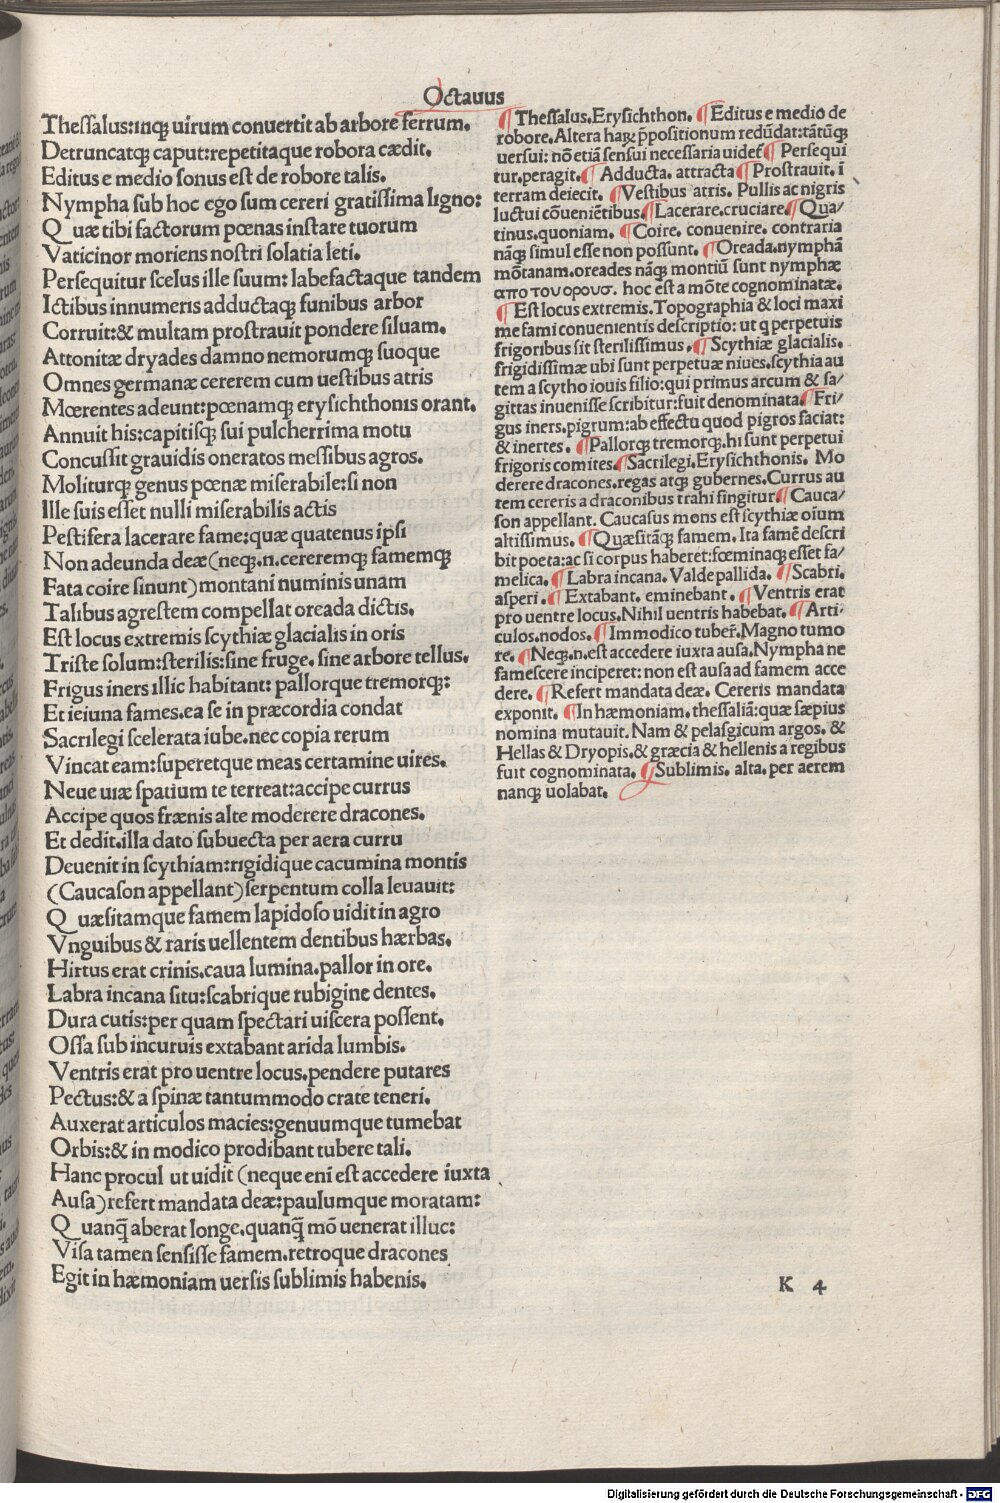 Octauus
Theſſalus:inq; uirum conuertit ab arbore ferrum.
Detruncatq; caput:repetitaque robora cædit.
Editus e medio ſonus eſt de robore talis.
Nympha ſub hoc ego ſum cereri gratiſſima ligno:
Quæ tibi factorum pœnas inſtare tuorum
Vaticinor moriens noſtri ſolatia leti.
Perſequitur ſcelus ille ſuum: labefactaque tandem
Ictibus innumeris adductaq; funibus arbor
Corruit:& multam proſtrauit pondere ſiluam.
Attonitæ dryades damno nemorumq; ſuoque
Omnes germanæ cererem cum ueſtibus atris
Mœrentes adeunt:pœnamq; eryſichthonis orant.
Annuit his:capitiſq; ſui pulcherrima motu
Concuſſit grauidis oneratos meſſibus agros.
Moliturq; genus pœnæ miſerabile:ſi non
Ille ſuis eſſet nulli miſerabilis actis
Peſtifera lacerare fame:quæ quatenus ipſi
Non adeunda deæ(neq;.n.cereremq; famemq;
Fata coire ſinunt)montani numinis unam
Talibus agreſtem compellat oreada dictis.
Eſt locus extremis ſcythiæ glacialis in oris
Triſte ſolum:ſterilis:ſine fruge. ſine arbore tellus.
Frigus iners illic habitant: pallorque tremorq;:
Et ieiuna fames.ea ſe in præcordia condat
Sacrilegi ſcelerata iube.nec copia rerum
Vincat eam:ſuperetque meas certamine uires.
Neue uiæ ſpatium te terreat:accipe currus
Accipe quos frænis alte moderere dracones.
Et dedit.illa dato ſubuecta per aera curru
Deuenit in ſcythiam:rigidique cacumina montis
(Caucaſon appellant)ſerpentum colla leuauit:
Quæſitamque famem lapidoſo uidit in agro
Vnguibus & raris uellentem dentibus hærbas.
Hirtus erat crinis.caua lumina.pallor in ore.
Labra incana ſitu:ſcabrique rubigine dentes.
Dura cutis:per quam ſpectari uiſcera poſſent.
Oſſa ſub incuruis extabant arida lumbis.
Ventris erat pro uentre locus.pendere putares
Pectus:& a ſpinæ tantummodo crate teneri.
Auxerat articulos macies:genuumque tumebat
Orbis:& in modico prodibant tubere tali.
Hanc procul ut uidit (neque eni eſt accedere iuxta
Auſa)refert mandata deæ:paulumque moratam:
Quanq̃ aberat longe.quanq̃ mō uenerat illuc:
Viſa tamen ſenſiſſe famem.retroque dracones
Egit in hæmoniam uerſis ſublimis habenis.
¶ Theſſalus.Eryſichthon. ¶ Editus e medio de
robore.Altera haꝝ p̄poſitionum redūdat:tātūq;
uerſui: nō etiā ſenſui neceſſaria uidet̃ ¶ Perſequi
tur.peragit. ¶ Adducta. attracta ¶ Proſtrauit. ī
terram deiecit. ¶ Veſtibus atris. Pullis ac nigris
luctui cōueniētibus. ¶ Lacerare.cruciare ¶ Qua/
tinus.quoniam. ¶ Coire. conuenire. contraria
nāq; ſimul eſſe non poſſunt. ¶ Oreada.nymphā
mōtanam.oreades nāq; montiū ſunt nymphæ
απο του ορουσ. hoc eſt a mōte cognominatæ.
¶ Eſt locus extremis.Topographia & loci maxi
me fami conuenientis deſcriptio: ut q perpetuis
frigoribus ſit ſteriliſſimus. ¶ Scythiæ glacialis.
frigidiſſimæ ubi ſunt perpetuæ niues.ſcythia au
tem a ſcytho iouis filio:qui primus arcum & ſa/
gittas inueniſſe ſcribitur:fuit denominata. ¶ Fri/
gus iners.pigrum:ab effectu quod pigros faciat:
& inertes. ¶ Pallorq; tremorq;.hi ſunt perpetui
frigoris comites. ¶ Sacrilegi.Eryſichthonis. Mo
derere dracones.regas atq; gubernes.Currus au
tem cereris a draconibus trahi fingitur. ¶ Cauca/
ſon appellant. Caucaſus mons eſt ſcythiæ oīum
altiſſimus. ¶ Quæſitāq; famem. Ita famē deſcri
bit poeta:ac ſi corpus haberet:fœminaq; eſſet fa/
melica. ¶ Labra incana. Valde pallida. ¶ Scabri.
aſperi. ¶ Extabant. eminebant. ¶ Ventris erat
pro uentre locus.Nihil uentris habebat. ¶ Arti/
culos.nodos. ¶ Immodico tuber̃.Magno tumo
re. ¶ Neq;.n.eſt accedere iuxta auſa.Nympha ne
fameſcere inciperet: non eſt auſa ad famem acce
dere. ¶ Refert mandata deæ. Cereris mandata
exponit. ¶ In hæmoniam.theſſaliā:quæ ſæpius
nomina mutauit. Nam & pelaſgicum argos. &
Hellas & Dryopis.& græcia & hellenis a regibus
fuit cognominata. ¶ Sublimis. alta.per aerem
nanq; uolabat.
K 4
Digitalisierung gefördert durch die Deutsche Forschungsgemeinschaft - DFG